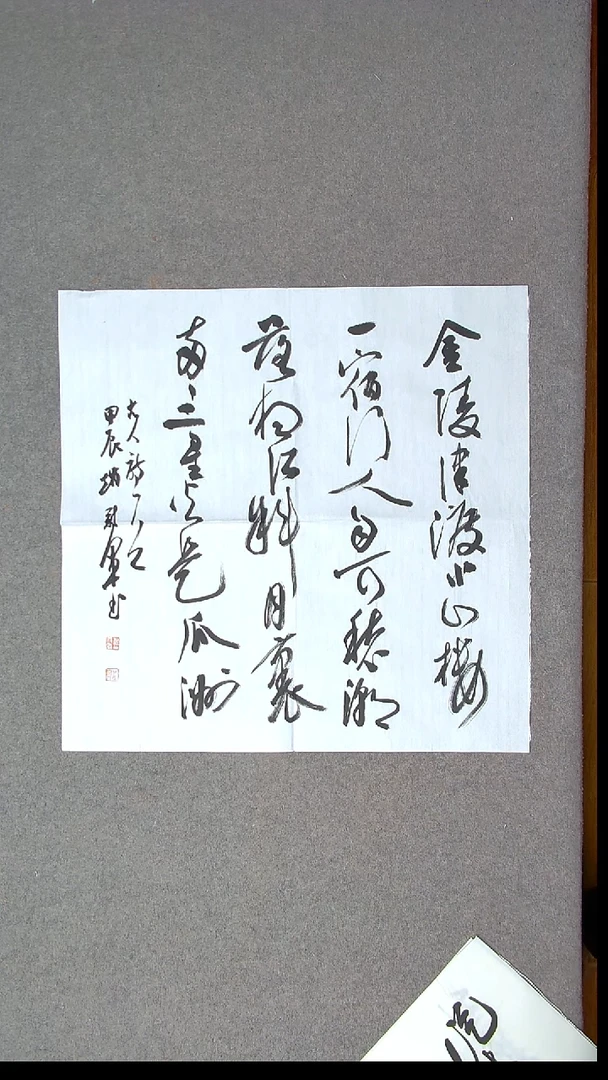 金陵津渡小山樓
一宿行人自可愁潮
落夜江斜月裏
两三星火是瓜洲
古人詩一首
甲辰 书